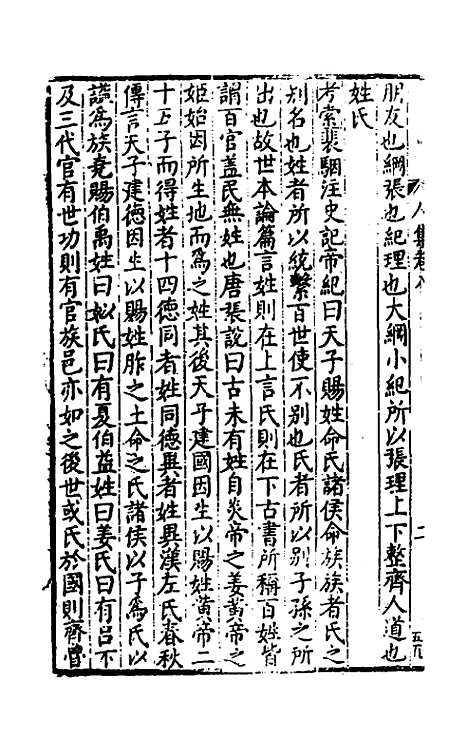 朋友也綱張也紀理也大綱小紀所以張理上下整齊人道也
姓氏
考索裴駰注史記帝紀曰天子賜姓命氏諸侯命族族者氏之
別名也姓者所以統繫百世使不別也氏者所以別子孫之所
出也故世本論篇言姓則在上言氏則在下古書所稱百姓皆
謂百官蓋民無姓也唐張說曰古未有姓自炎帝之姜黃帝之
姬始因所生地而為之姓其後天子建國因生以賜姓黃帝二
十五子而得姓者十四德同者姓同德異者姓異漢左氏春秋
傳言天子建德因生以賜姓胙之土命之氏諸侯以子為氏以
諡為族堯賜伯禹姓曰姒氏曰有夏伯益姓曰姜氏曰有呂下
及三代官有世功則有官族邑亦如之後世或氏於國則齊魯